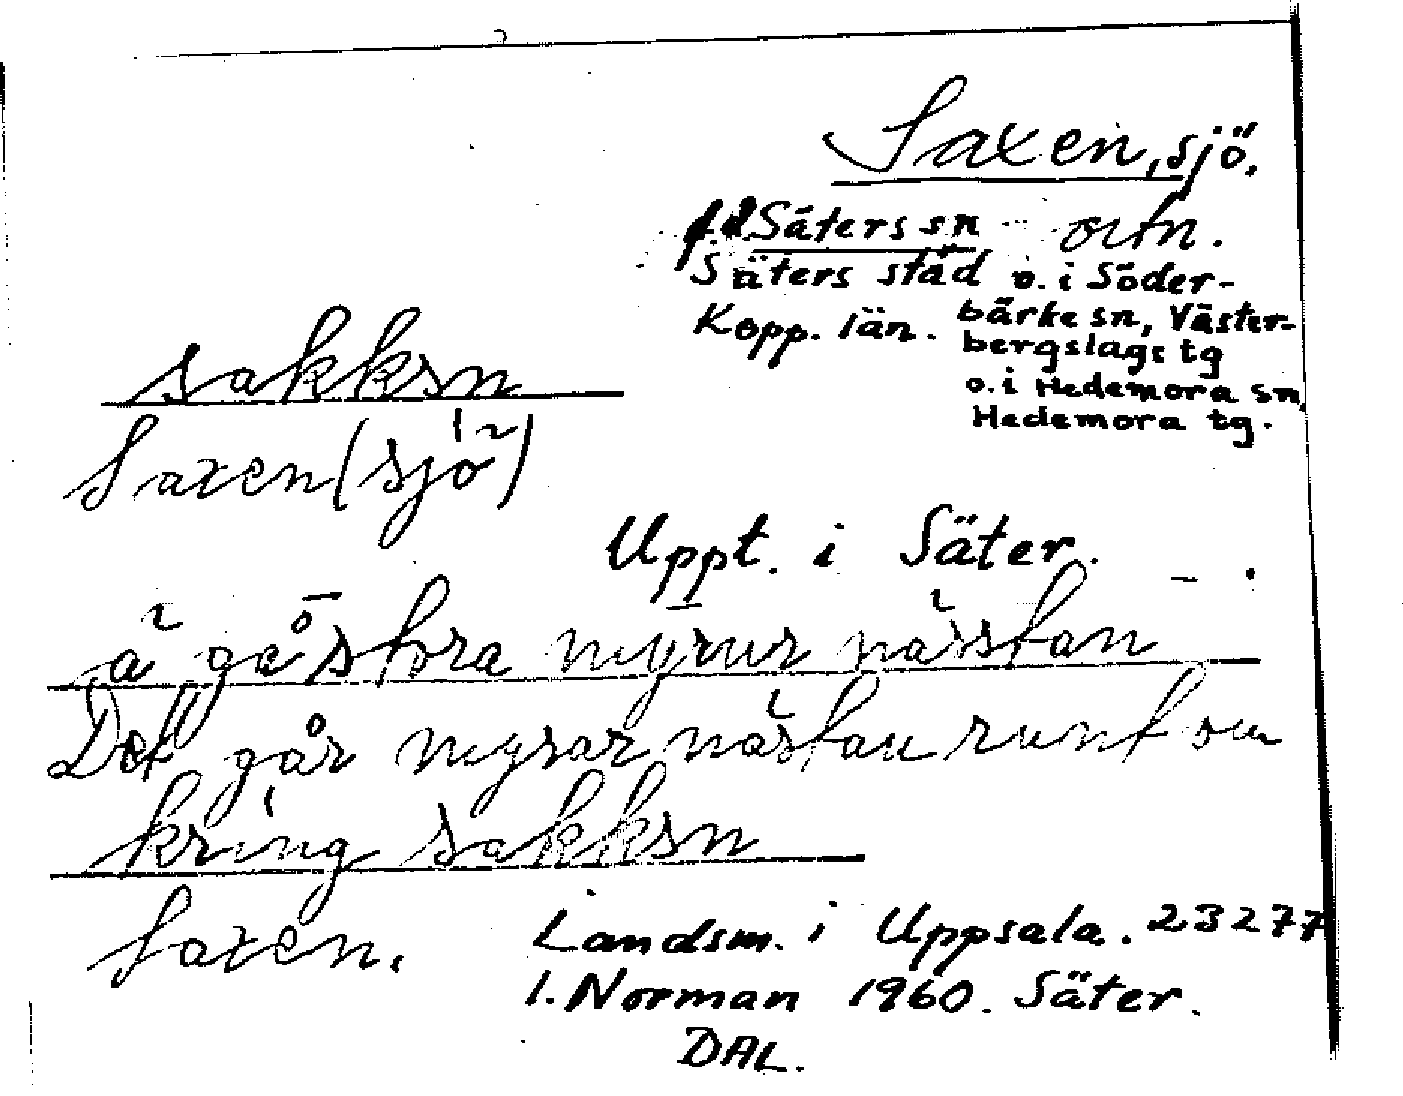 Saxen, sjö.
f.d Säters sn ortn.
Säters stad o. i Söder-
Kopp. län. bärke sn, Väster-
bergslags tg
o. i Hedemora sn,
Hedemora tg.
sakksn
Saxen (sjö)
Uppt. i Säter.
ä gå stora myrur nässtan
Det går myrar nästan runt om
kring sakksn
Saxen.
Landsm. i Uppsala. 23277
I. Norman 1960. Säter.
DAL.